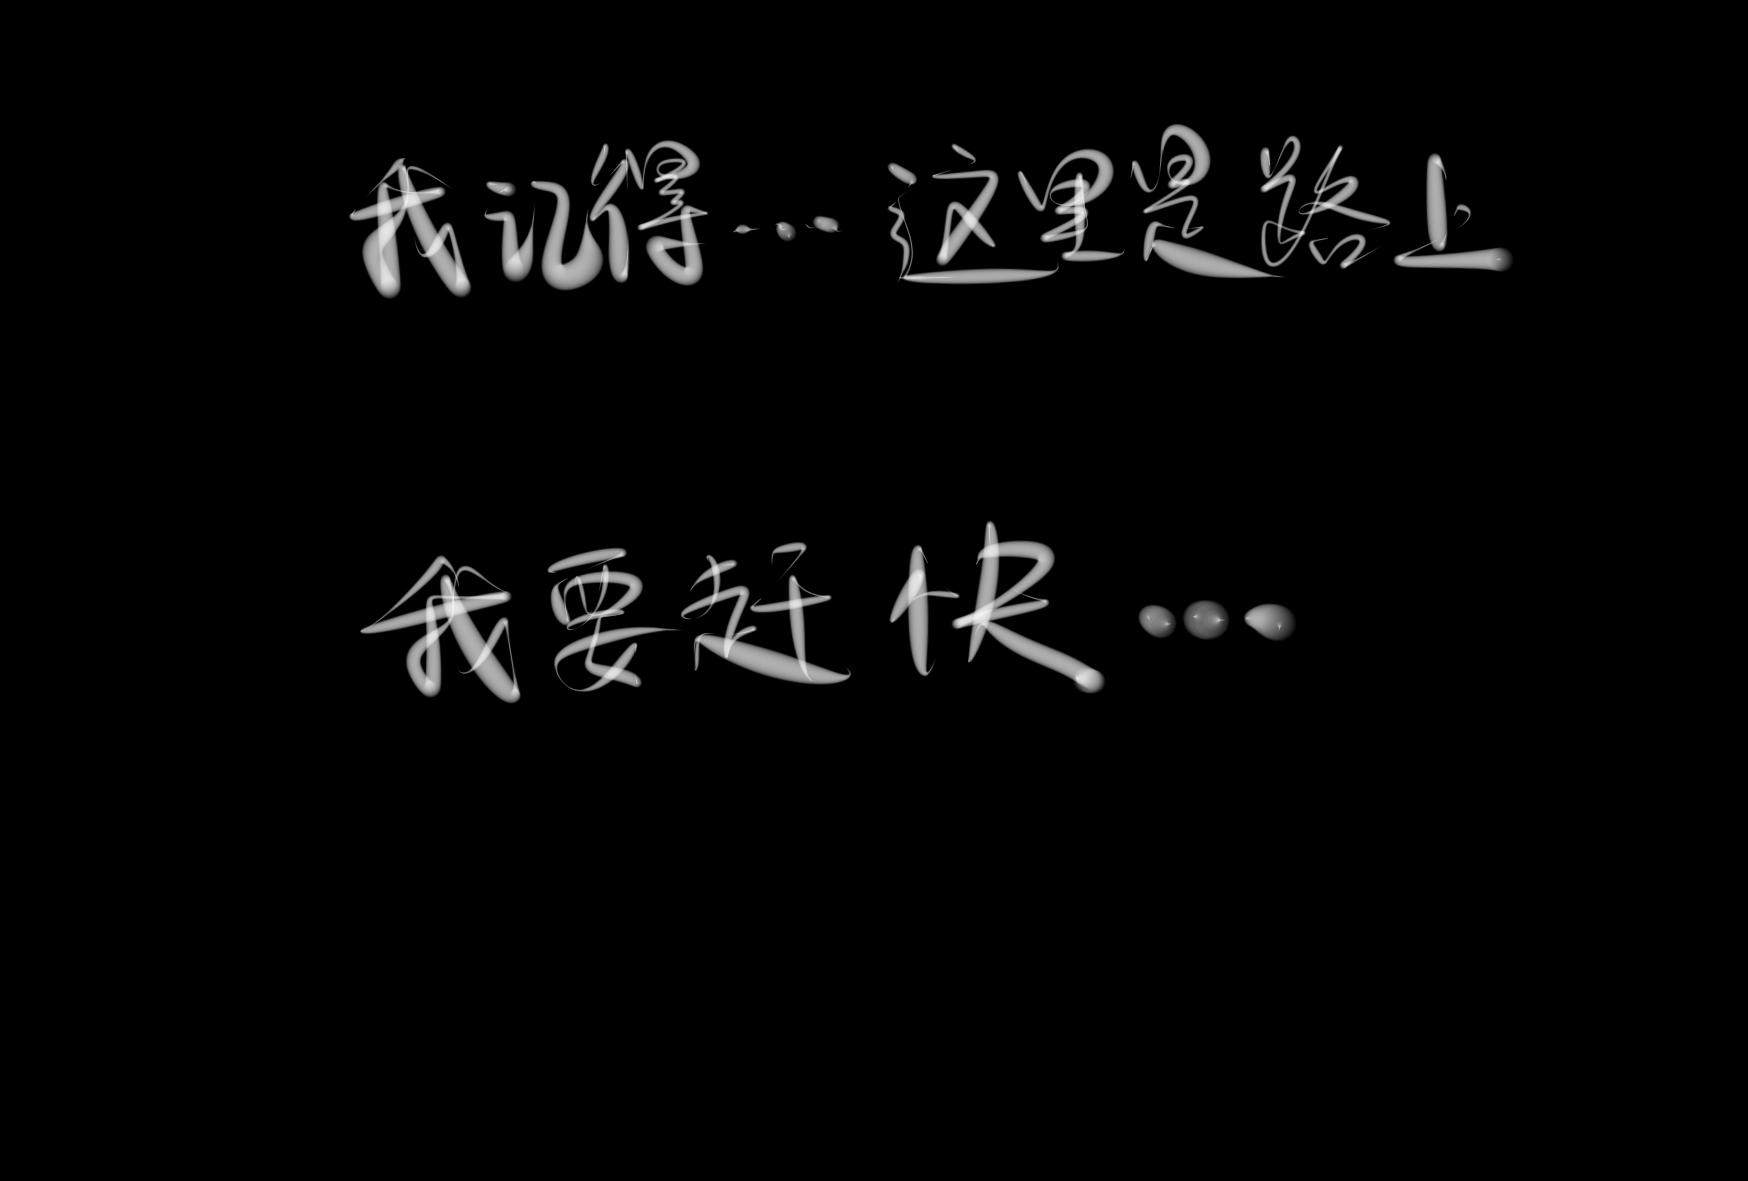 我记得…这里是路上
我要赶快…